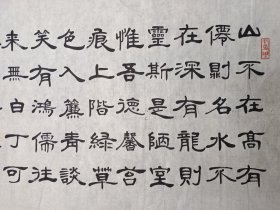 山不在高有
僊則名水不
在深有龍則
靈斯是陋室
惟吾德馨苔
痕上階緑草
色入簾青談
笑有鴻儒往
来無白丁可